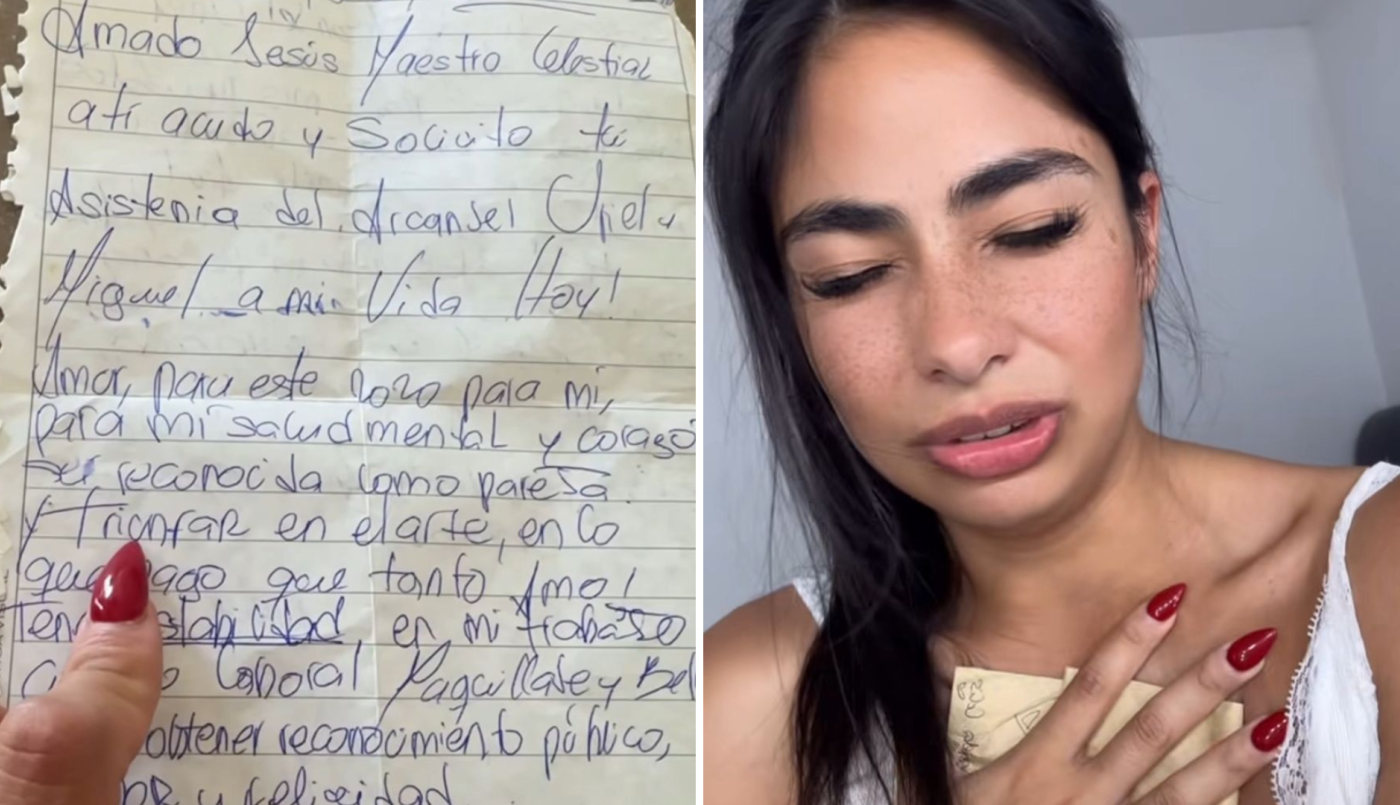 Amado Jesús Maestro Celestial
ati acudo y Solicito tu
Asistenia del Arcangel Uriel y
Miguel a mi Vida Hoy!
Amor, para este 2020 para mi,
para mi salud mental y corazó
ser reconocida como pareja
y Triunfar en el arte, en lo
que hago que tanto Amo!
en mi trabajo
laboral Maquillaje y Bel
obtener reconocimiento público,
y felicidad